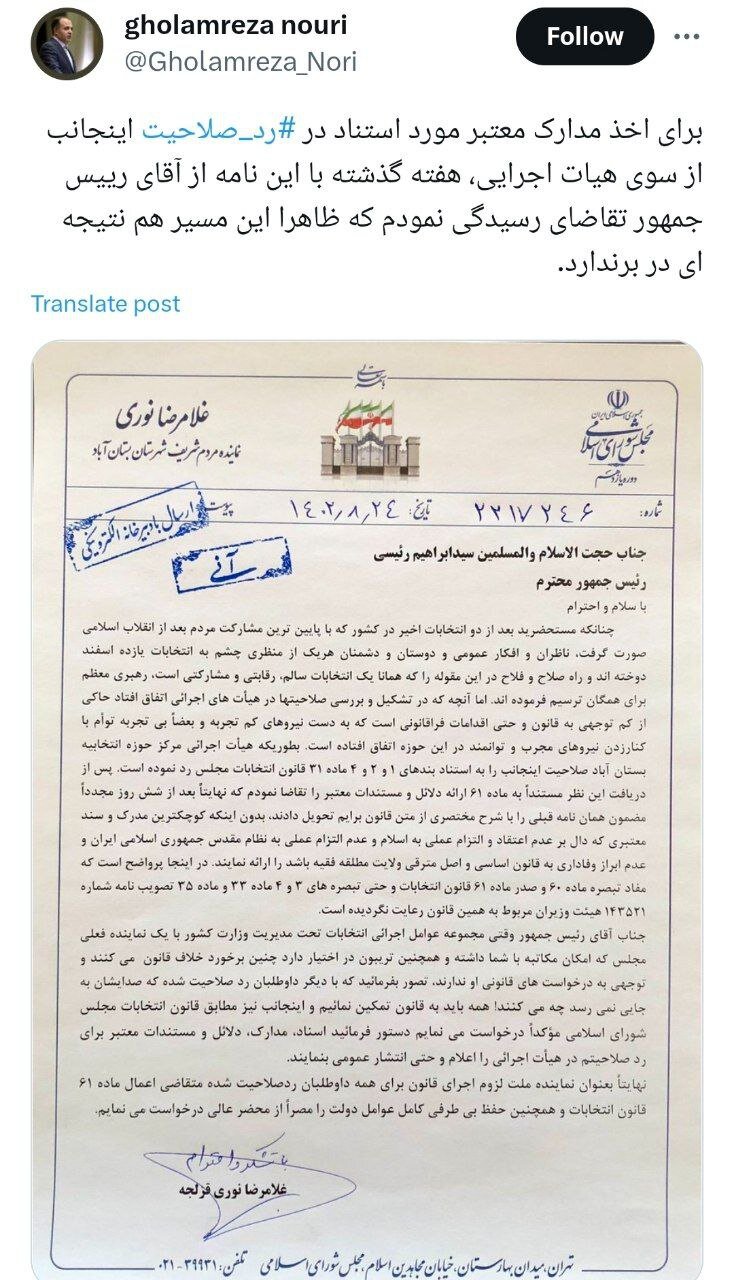 gholamreza nouri
@Gholamreza_Nori
Follow
برای اخذ مدارک معتبر مورد استناد در #رد_صلاحیت اینجانب
از سوی هیات اجرایی، هفته گذشته با این نامه از آقای رییس
جمهور تقاضای رسیدگی نمودم که ظاهرا این مسیر هم نتیجه
ای در برندارد.
Translate post
باسمه تعالی
جمهوری اسلامی ایران
مجلس شورای اسلامی
دوره یازدهم
غلامرضا نوری
نماینده مردم شریف شهرستان بستان آباد
شماره: ۲۲۱۷۲۴۶
تاریخ: ۱۴۰۲٫۸٫۲۴
پیوست
ارسال با دبیرخانه الکترونیکی
آنی
جناب حجت الاسلام والمسلمین سیدابراهیم رئیسی
رئیس جمهور محترم
با سلام و احترام
چنانکه مستحضرید بعد از دو انتخابات اخیر در کشور که با پایین ترین مشارکت مردم بعد از انقلاب اسلامی
صورت گرفت، ناظران و افکار عمومی و دوستان و دشمنان هریک از منظری چشم به انتخابات یازده اسفند
دوخته اند و راه صلاح و فلاح در این مقوله را که همانا یک انتخابات سالم، رقابتی و مشارکتی است، رهبری معظم
برای همگان ترسیم فرموده اند. اما آنچه که در تشکیل و بررسی صلاحیتها در هیأت های اجرائی اتفاق افتاد حاکی
از کم توجهی به قانون و حتی اقدامات فراقانونی است که به دست نیروهای کم تجربه و بعضاً بی تجربه توأم با
کنارزدن نیروهای مجرب و توانمند در این حوزه اتفاق افتاده است. بطوریکه هیأت اجرائی مرکز حوزه انتخابیه
بستان آباد صلاحیت اینجانب را به استناد بندهای ۱ و ۲ و ۴ ماده ۳۱ قانون انتخابات مجلس رد نموده است. پس از
دریافت این نظر مستنداً به ماده ۶۱ ارائه دلائل و مستندات معتبر را تقاضا نمودم که نهایتاً بعد از شش روز مجدداً
مضمون همان نامه قبلی را با شرح مختصری از متن قانون برایم تحویل دادند، بدون اینکه کوچکترین مدرک و سند
معتبری که دال بر عدم اعتقاد و التزام عملی به اسلام و عدم التزام عملی به نظام مقدس جمهوری اسلامی ایران و
عدم ابراز وفاداری به قانون اساسی و اصل مترقی ولایت مطلقه فقیه باشد را ارائه نمایند. در اینجا پرواضح است که
مفاد تبصره ماده ۶۰ و صدر ماده ۶۱ قانون انتخابات و حتی تبصره های ۳ و ۴ ماده ۳۳ و ماده ۳۵ تصویب نامه شماره
۱۴۳۵۲۱ هیئت وزیران مربوط به همین قانون رعایت نگردیده است.
جناب آقای رئیس جمهور وقتی مجموعه عوامل اجرائی انتخابات تحت مدیریت وزارت کشور با یک نماینده فعلی
مجلس که امکان مکاتبه با شما داشته و همچنین تریبون در اختیار دارد چنین برخورد خلاف قانون می کنند و
توجهی به درخواست های قانونی او ندارند، تصور بفرمائید که با دیگر داوطلبان رد صلاحیت شده که صدایشان به
جایی نمی رسد چه می کنند! همه باید به قانون تمکین نمائیم و اینجانب نیز مطابق قانون انتخابات مجلس
شورای اسلامی مؤکداً درخواست می نمایم دستور فرمائید اسناد، مدارک، دلائل و مستندات معتبر برای
رد صلاحیتم در هیأت اجرائی را اعلام و حتی انتشار عمومی بنمایند.
نهایتاً بعنوان نماینده ملت لزوم اجرای قانون برای همه داوطلبان ردصلاحیت شده متقاضی اعمال ماده ۶۱
قانون انتخابات و همچنین حفظ بی طرفی کامل عوامل دولت را مصراً از محضر عالی درخواست می نمایم.
با تشکر و احترام
غلامرضا نوری قزلجه
تهران، میدان بهارستان، خیابان مجاهدین اسلام، مجلس شورای اسلامی تلفن: ۳۹۹۳۱-۰۲۱